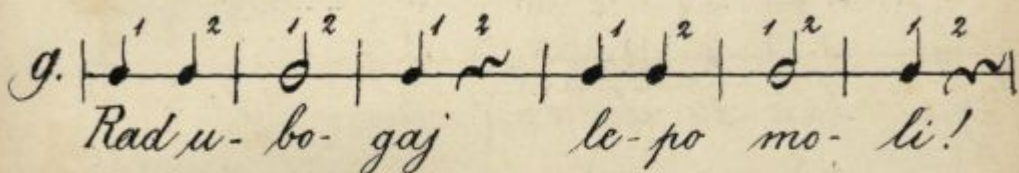 1 2 1 2 1 2 1 2 1 2 1 2
g.
Rad u- bo- gaj le- po mo- li!